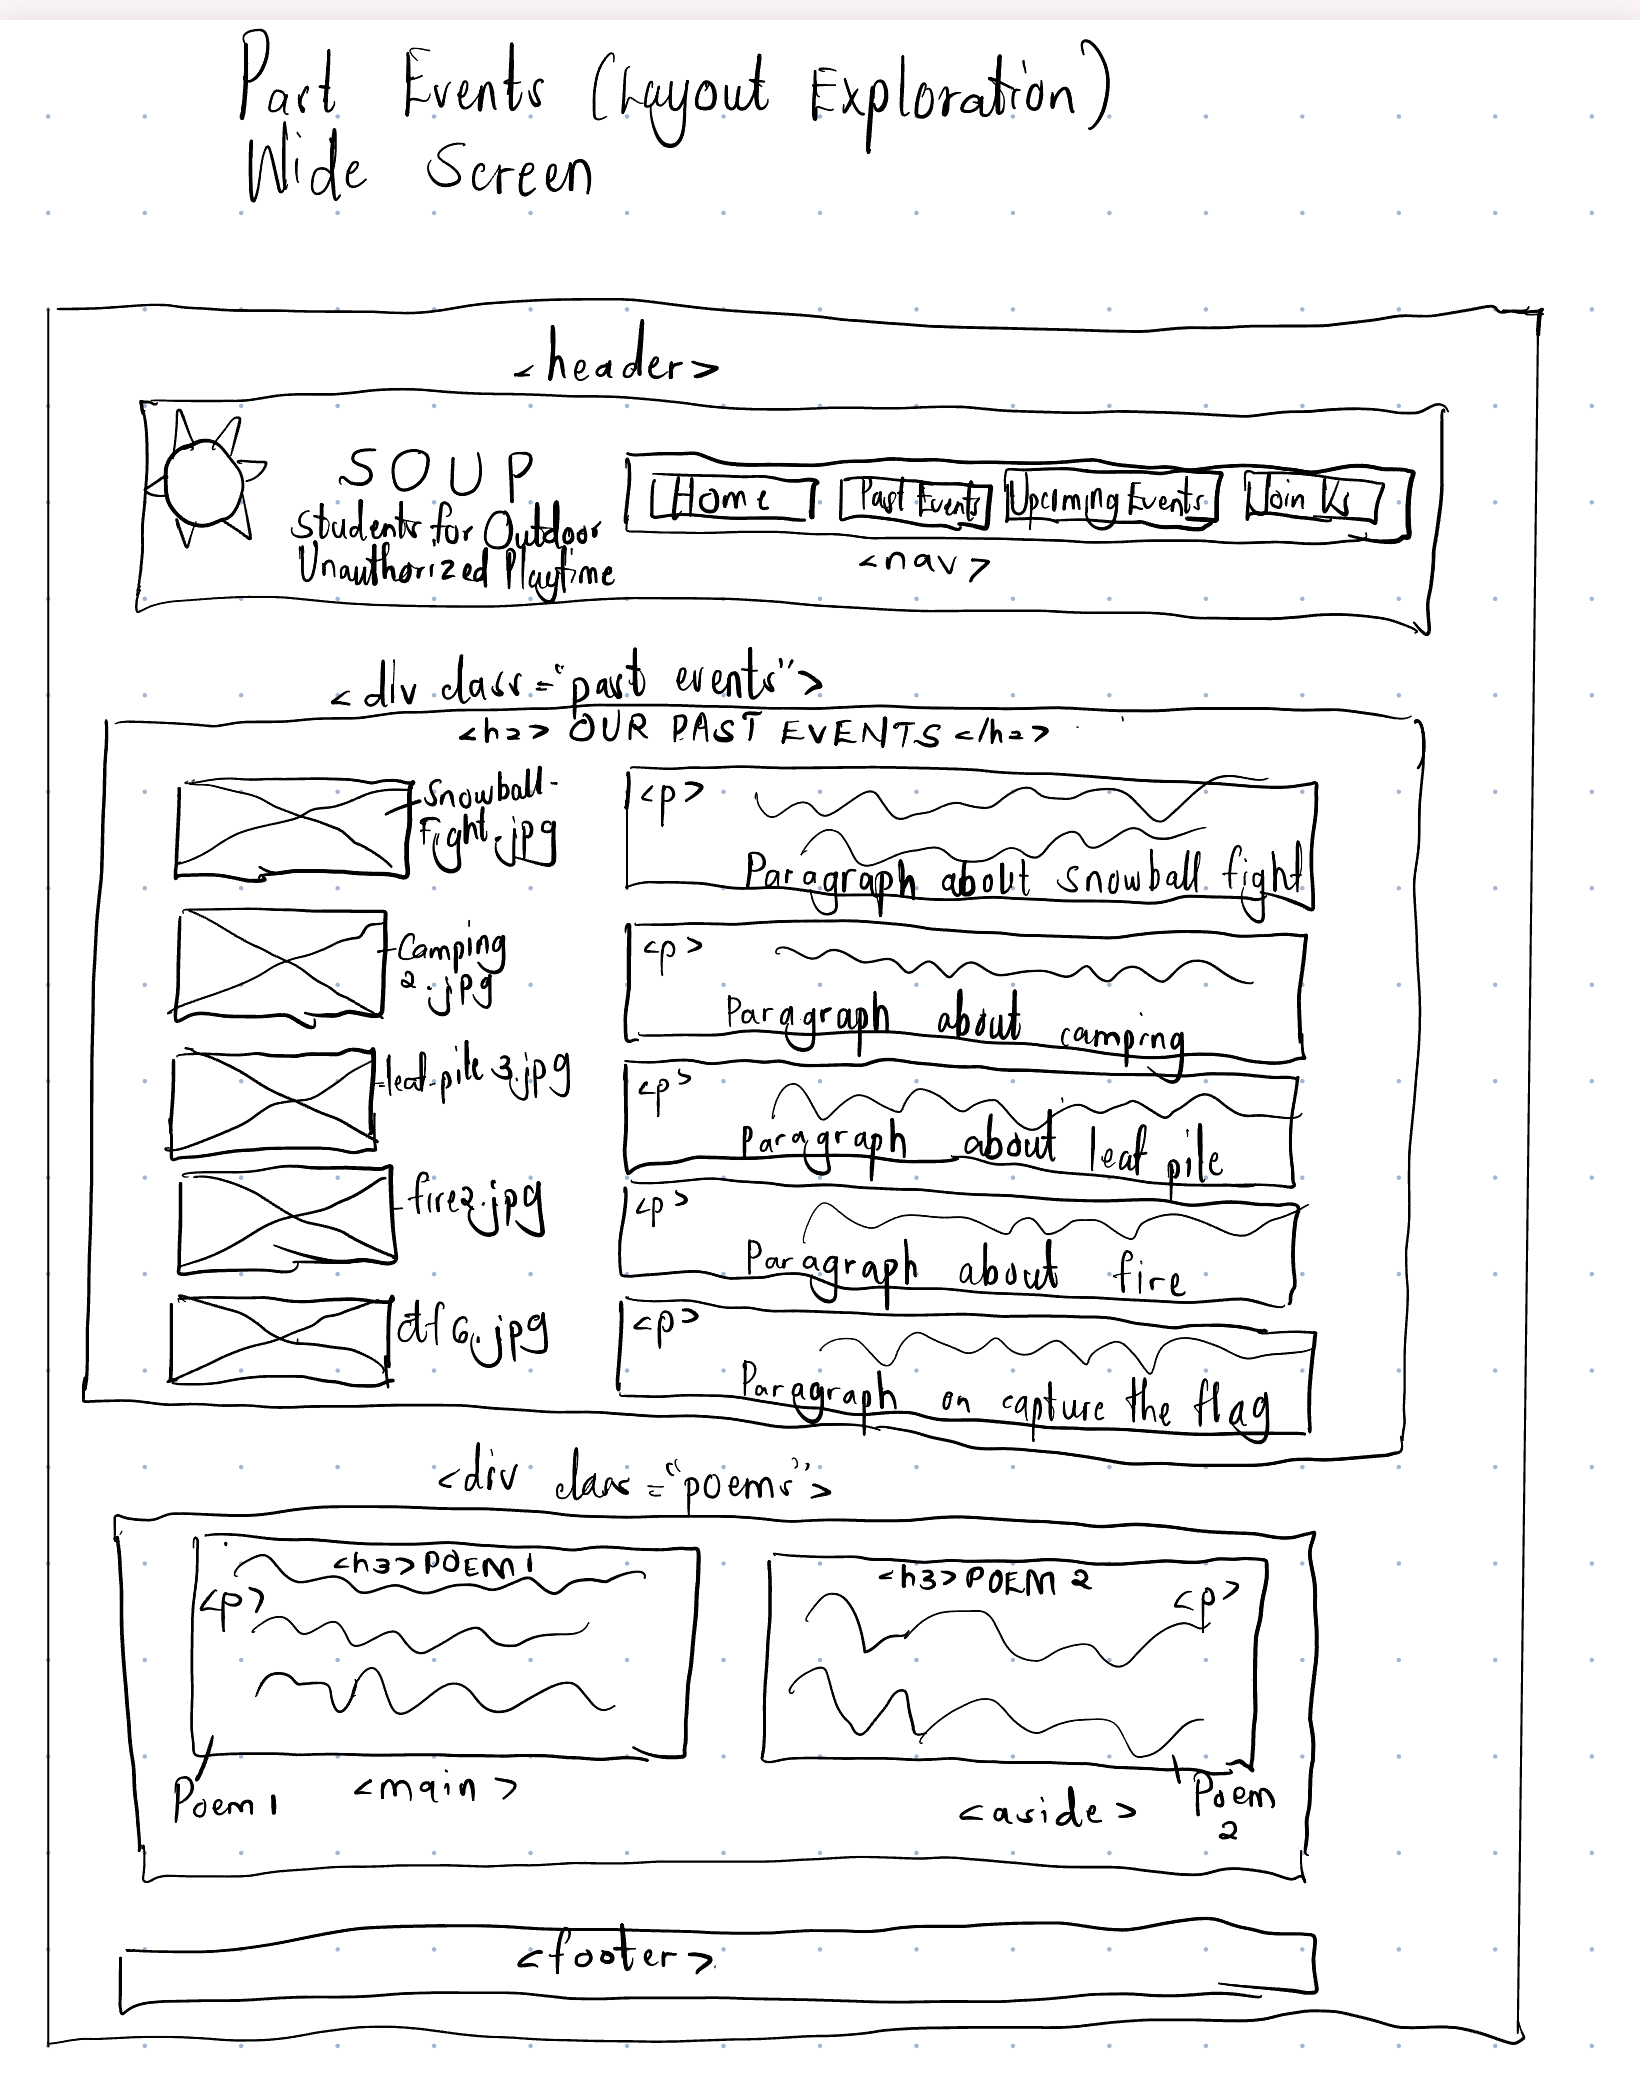 Past Events (Layout Exploration)
Wide Screen
<header>
SOUP
Students for Outdoor
Unauthorized Playtime
Home Past Events Upcoming Events Join Us
<nav>
<div class="past events">
<h2> OUR PAST EVENTS </h2>
Snowball-
Fight.jpg
<p>
Paragraph about snowball fight
Camping
2.jpg
<p>
Paragraph about camping
leaf-pile 3.jpg
<p>
Paragraph about leaf pile
fire2.jpg
<p>
Paragraph about fire
ctf6.jpg
<p>
Paragraph on capture the flag
<div class="poems">
<h3> POEM 1
<p>
Poem 1
<main>
<h3> POEM 2
<p>
<aside>
Poem
2
<footer>